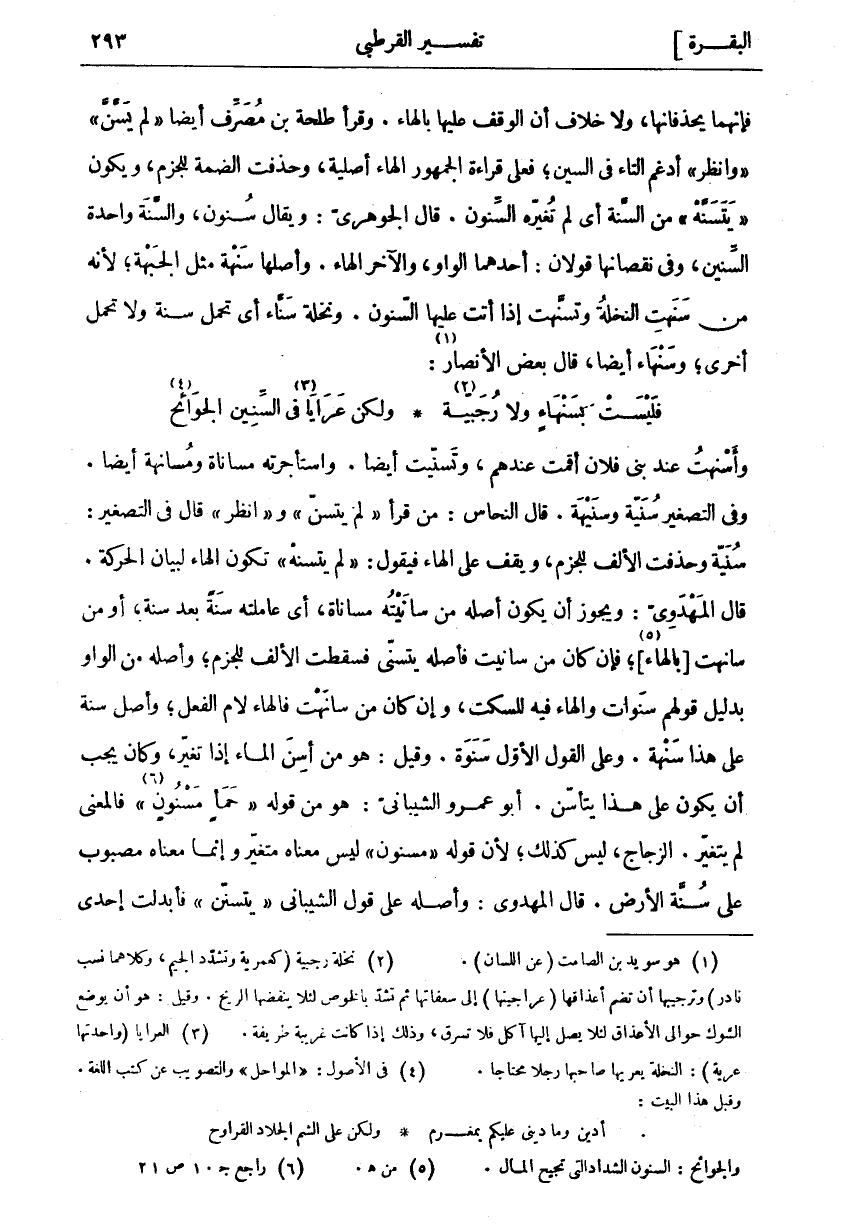 البقـــرة ]
تفســـير القرطبى
٢٩٣
فإنهما يحذفانها، ولا خلاف أن الوقف عليها بالهاء . وقرأ طلحة بن مُصَرِّف أيضا « لم يَسَّنَّ»
«وانظر» أدغم التاء فى السين؛ فعلى قراءة الجمهور الهاء أصلية، وحذفت الضمة للجزم، ويكون
« يَتَسَنَّهْ » من السَّنة أى لم تُغيّره السِّنون . قال الجوهرىّ : ويقال سُنون، والسَّنَة واحدة
السِّنين، وفى نقصانها قولان : أحدهما الواو، والآخر الهاء . وأصلها سَنْهة مثل الجَبْهة؛ لأنه
من سَنَهتِ النخلةُ وتسنَّهت إذا أتت عليها السّنون . ونخلة سَنَّاء أى تحمل سنة ولا تحمل
أخرى؛ وسَنْهاء أيضا، قال بعض الأنصار (١) :
فَلَيْسَــتْ بَسَنْهَاءٍ ولا رُجَبيَّــة (٢) * ولكن عَرَايَا (٣) فى السِّنِين الجوَائح (٤)
وأَسْنهتُ عند بنى فلان أقمت عندهم، وتَسنّيت أيضا . واستأجرته مساناة ومُسانهة أيضا .
وفى التصغير سُنَيّة وسنَيْهَة . قال النحاس : من قرأ « لم يتسنّ » و « انظر » قال فى التصغير :
سُنَيّة وحذفت الألف للجزم، ويقف على الهاء فيقول: « لم يتسنهْ » تكون الهاء لبيان الحركة .
قال المَهْدَوِىّ : ويجوز أن يكون أصله من سانَيْتُه مساناة، أى عاملته سَنَةً بعد سنة، أو من
سانهت [بالهاء] (٥)؛ فإن كان من سانيت فأصله يتسنّى فسقطت الألف للجزم؛ وأصله من الواو
بدليل قولهم سنَوات والهاء فيه للسكت، وإن كان من سانَهْت فالهاء لام الفعل؛ وأصل سنة
على هذا سَنْهة . وعلى القول الأوّل سَنَوَة . وقيل : هو من أسِنَ المــاء إذا تغيّر، وكان يجب
أن يكون على هــذا يتأسّن . أبو عمــرو الشيبانىّ : هو من قوله « حَمَأٍ مَسْنُونٍ (٦) » فالمعنى
لم يتغيّر . الزجاج، ليس كذلك؛ لأن قوله «مسنون» ليس معناه متغيّر وإنمــا معناه مصبوب
على سُــنَّة الأرض . قال المهدوى : وأصــله على قول الشيبانى « يتسنّن » فأبدلت إحدى
(١) هو سويد بن الصامت (عن اللسان) . (٢) نخلة رجبية (كعمرية وتشدّد الجيم، وكلاهما نسب
نادر) وترجيبها أن تضم أعذاقها (عراجينها) إلى سعفاتها ثم تشدّ بالخوص لئلا ينفضها الريح . وقيل : هو أن يوضع
الشوك حوالى الأعذاق لئلا يصل إليها آكل فلا تسرق، وذلك إذا كانت غريبة طريفة . (٣) العرايا (واحدتها
عرية) : النخلة يعريها صاحبها رجلا محتاجا . (٤) فى الأصول : «المواحل» والتصويب عن كتب اللغة .
وقبل هذا البيت :
أدين وما دينى عليكم بمغــرم * ولكن على الشم الجلاد القراوح
والجوائح : السنون الشداد التى تجيح المــال . (٥) من ه . (٦) راجع جـ ١٠ ص ٢١